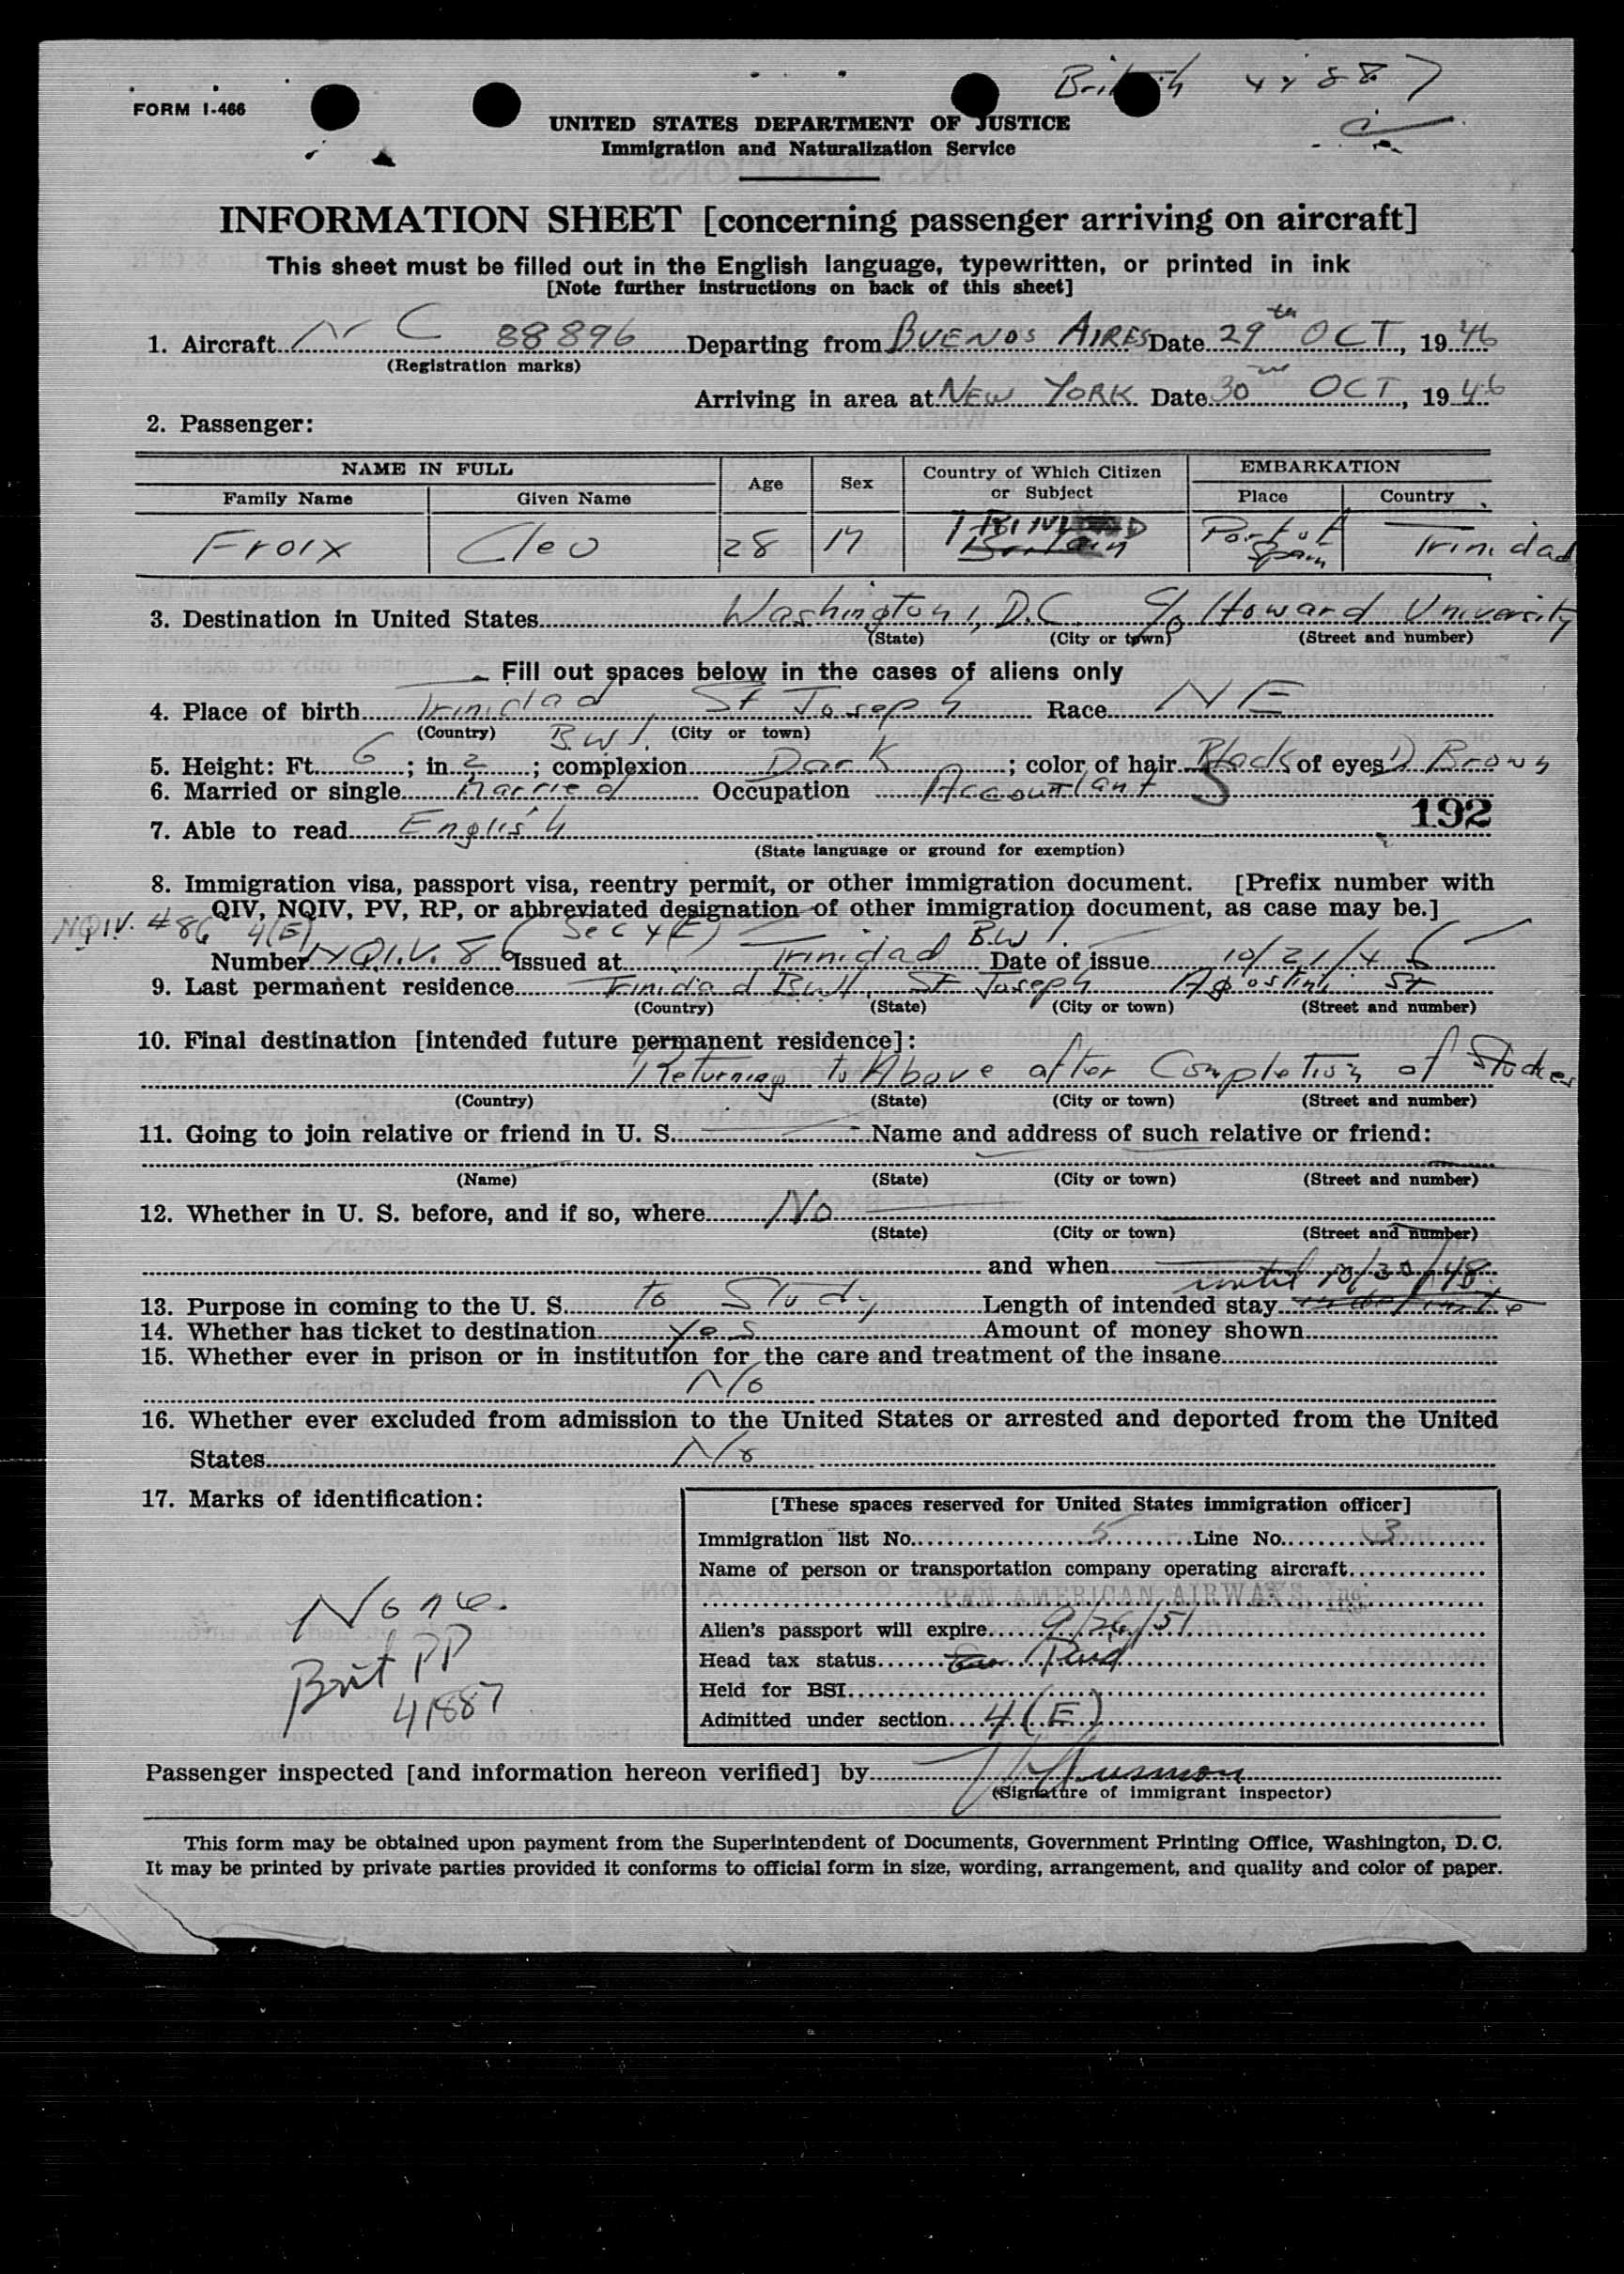 British 41887
FORM I-466
UNITED STATES DEPARTMENT OF JUSTICE
Immigration and Naturalization Service
INFORMATION SHEET [concerning passenger arriving on aircraft]
This sheet must be filled out in the English language, typewritten, or printed in ink
[Note further instructions on back of this sheet]
1. Aircraft NC 88896 Departing from BUENOS AIRES Date 29th OCT, 1946
(Registration marks)
Arriving in area at NEW YORK Date 30 OCT, 1946
2. Passenger:
NAME IN FULL Age Sex Country of Which Citizen or Subject EMBARKATION
Family Name Given Name Place Country
Froix Cleo 28 M Britain Port of Spain Trinidad
3. Destination in United States Washington 1, D.C. c/o Howard University
(State) (City or town) (Street and number)
Fill out spaces below in the cases of aliens only
4. Place of birth Trinidad St Joseph Race NE
(Country) B.W.I. (City or town)
5. Height: Ft. 6; in. 2; complexion Dark; color of hair Black of eyes D Brown
6. Married or single Married Occupation Accountant
192
7. Able to read English
(State language or ground for exemption)
8. Immigration visa, passport visa, reentry permit, or other immigration document. [Prefix number with
QIV, NQIV, PV, RP, or abbreviated designation of other immigration document, as case may be.]
NQIV. #86 4(E) Sec 4(E) B.W.I.
Number NQ.I.V. 86 Issued at Trinidad Date of issue 10/21/46
9. Last permanent residence Trinidad B.W.I. St Joseph Agostini St
(Country) (State) (City or town) (Street and number)
10. Final destination [intended future permanent residence]:
Returning to Above after Completion of Studies
(Country) (State) (City or town) (Street and number)
11. Going to join relative or friend in U. S. Name and address of such relative or friend:
(Name) (State) (City or town) (Street and number)
12. Whether in U. S. before, and if so, where No
(State) (City or town) (Street and number)
and when
until 10/30/48.
13. Purpose in coming to the U. S. to Study Length of intended stay indefinite
14. Whether has ticket to destination Yes Amount of money shown
15. Whether ever in prison or in institution for the care and treatment of the insane
No
16. Whether ever excluded from admission to the United States or arrested and deported from the United
States No
17. Marks of identification:
None.
Brit PP
41887
[These spaces reserved for United States immigration officer]
Immigration list No. 5 Line No. 3
Name of person or transportation company operating aircraft
PAN AMERICAN AIRWAYS, Inc.
Alien's passport will expire 9/26/51
Head tax status Paid
Held for BSI
Admitted under section 4(E)
Passenger inspected [and information hereon verified] by
(Signature of immigrant inspector)
This form may be obtained upon payment from the Superintendent of Documents, Government Printing Office, Washington, D. C.
It may be printed by private parties provided it conforms to official form in size, wording, arrangement, and quality and color of paper.